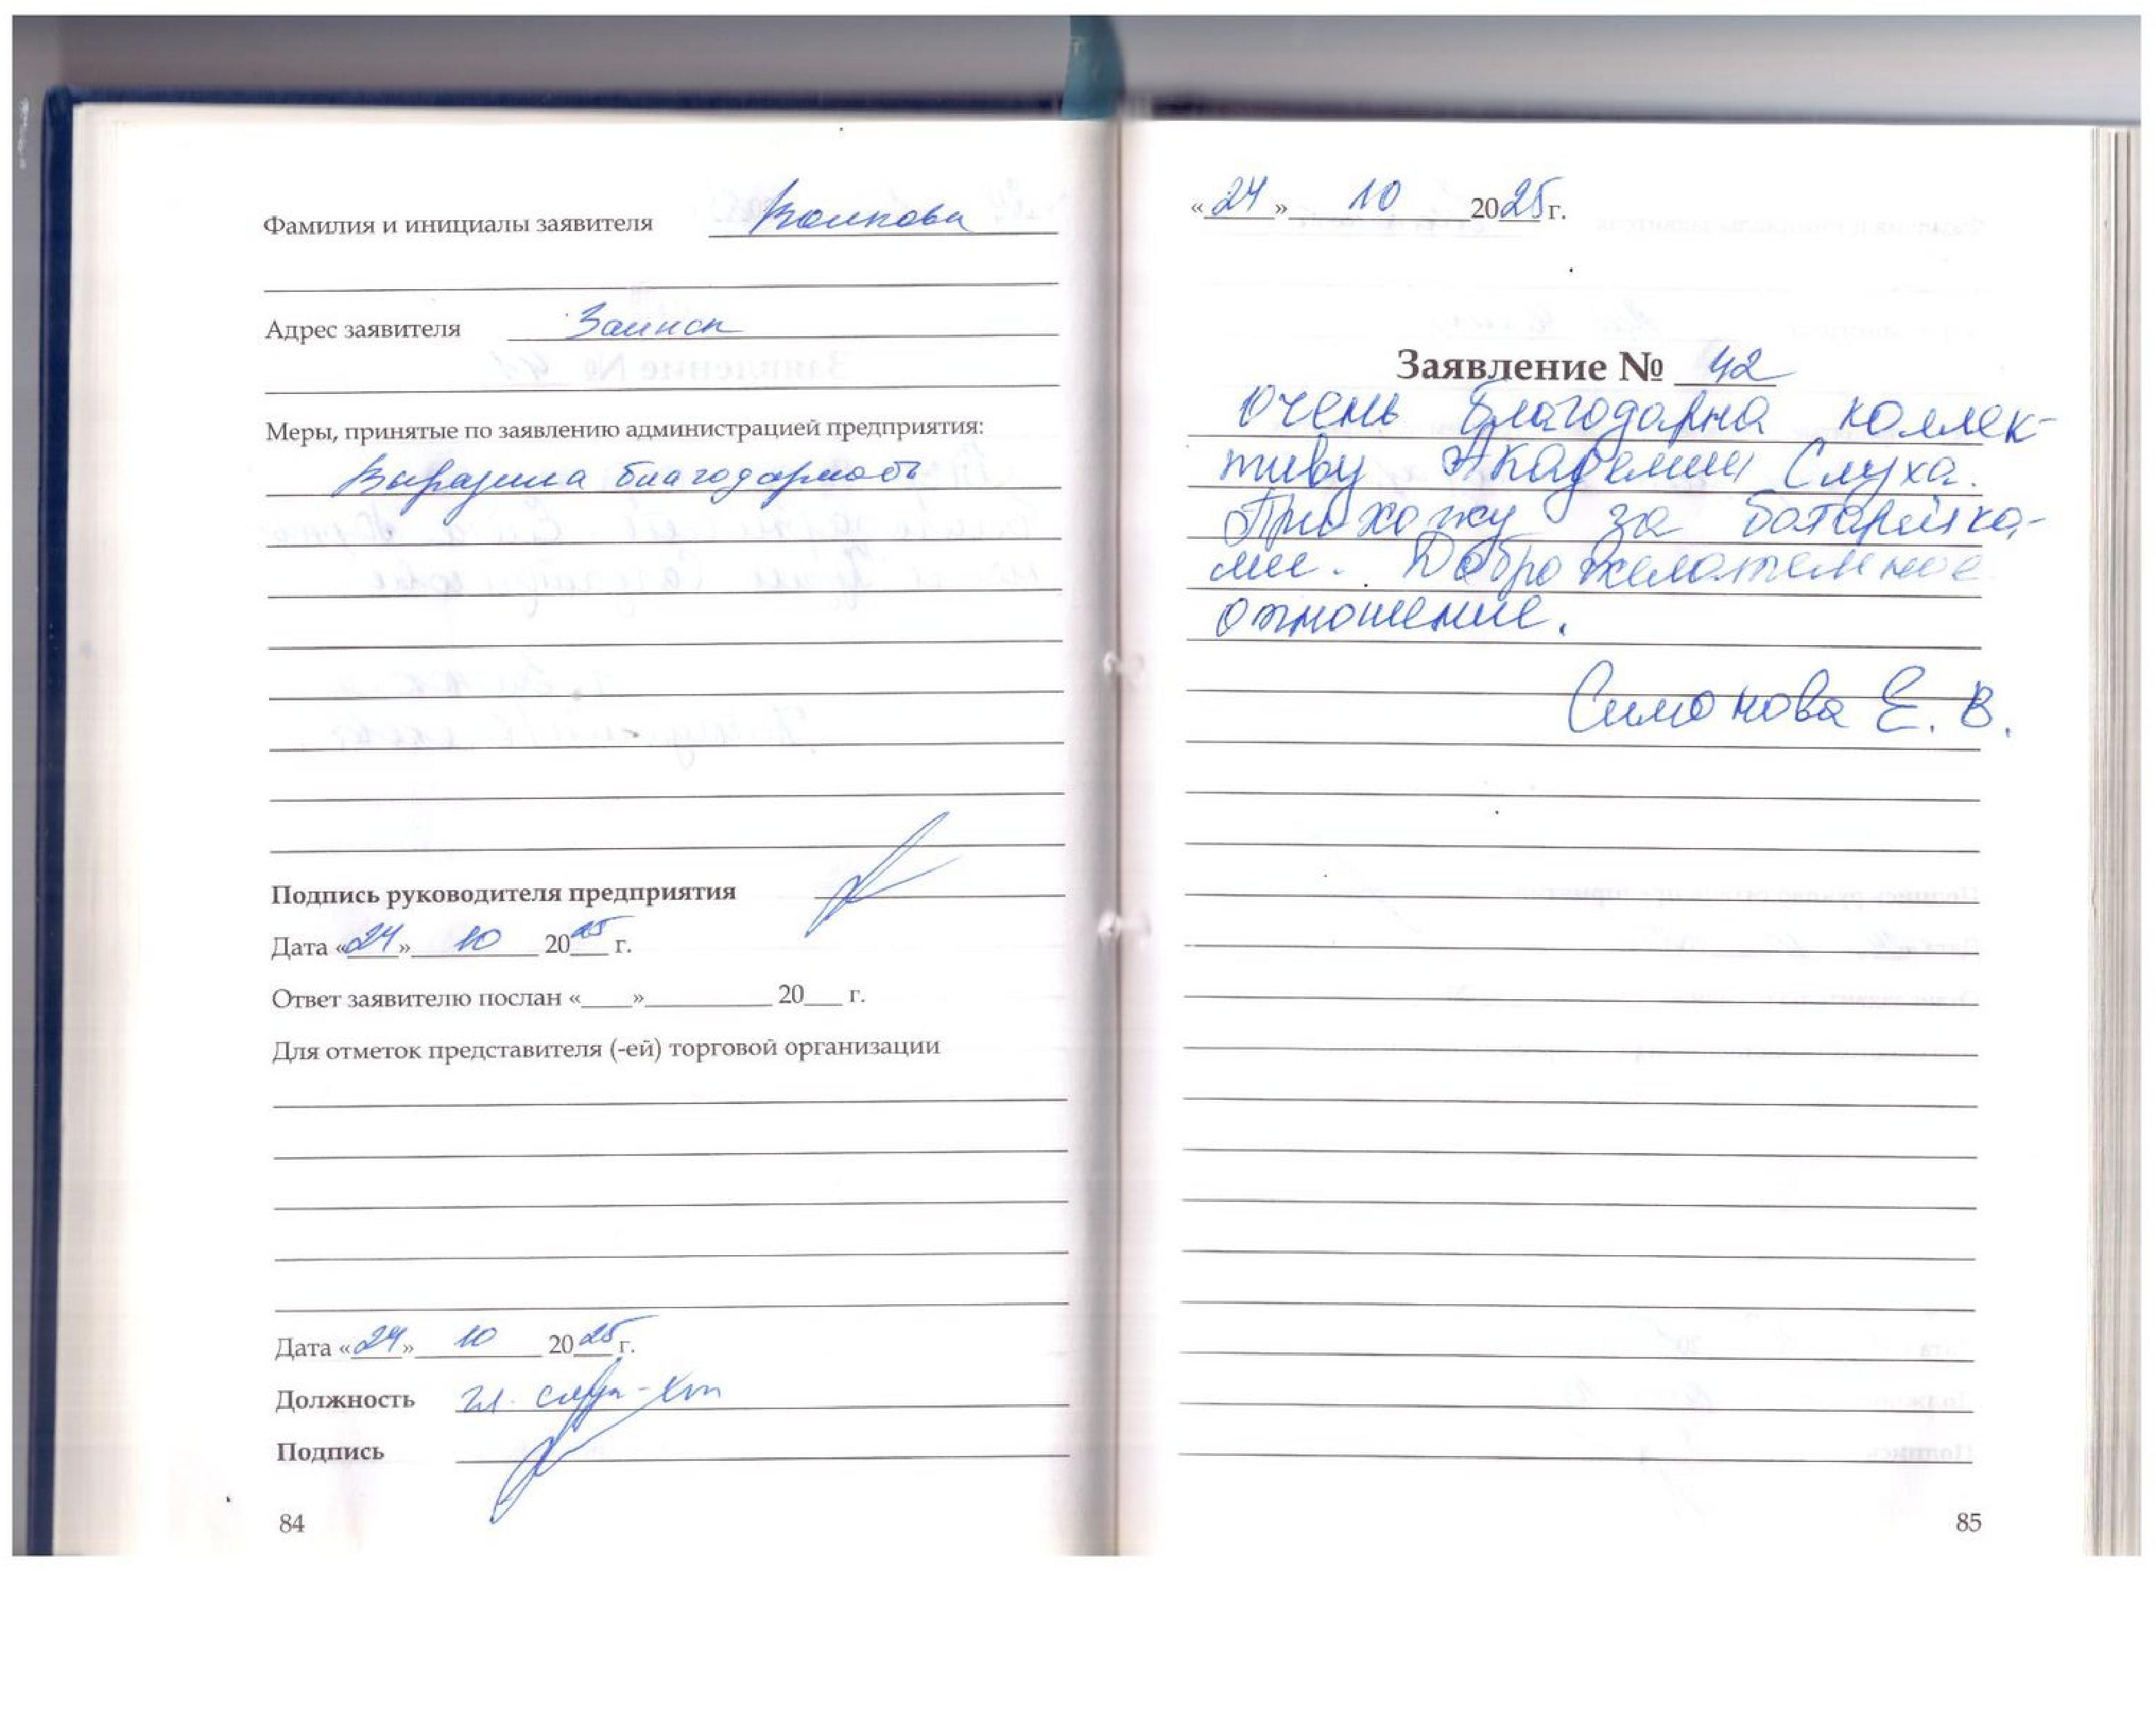 Фамилия и инициалы заявителя Волкова
Адрес заявителя Заинск
Меры, принятые по заявлению администрацией предприятия:
Выразила благодарность
Подпись руководителя предприятия
Дата «24» 10 2025 г.
Ответ заявителю послан «____»__________ 20___ г.
Для отметок представителя (-ей) торговой организации
Дата «24» 10 2025 г.
Должность гл.
Подпись
84
«24» 10 2025 г.
Заявление № 42
Очень благодарна коллек-
тиву Академии Слуха.
Прихожу за батарейка-
ми. Доброжелательное
отношение.
Симонова Е. В.
85